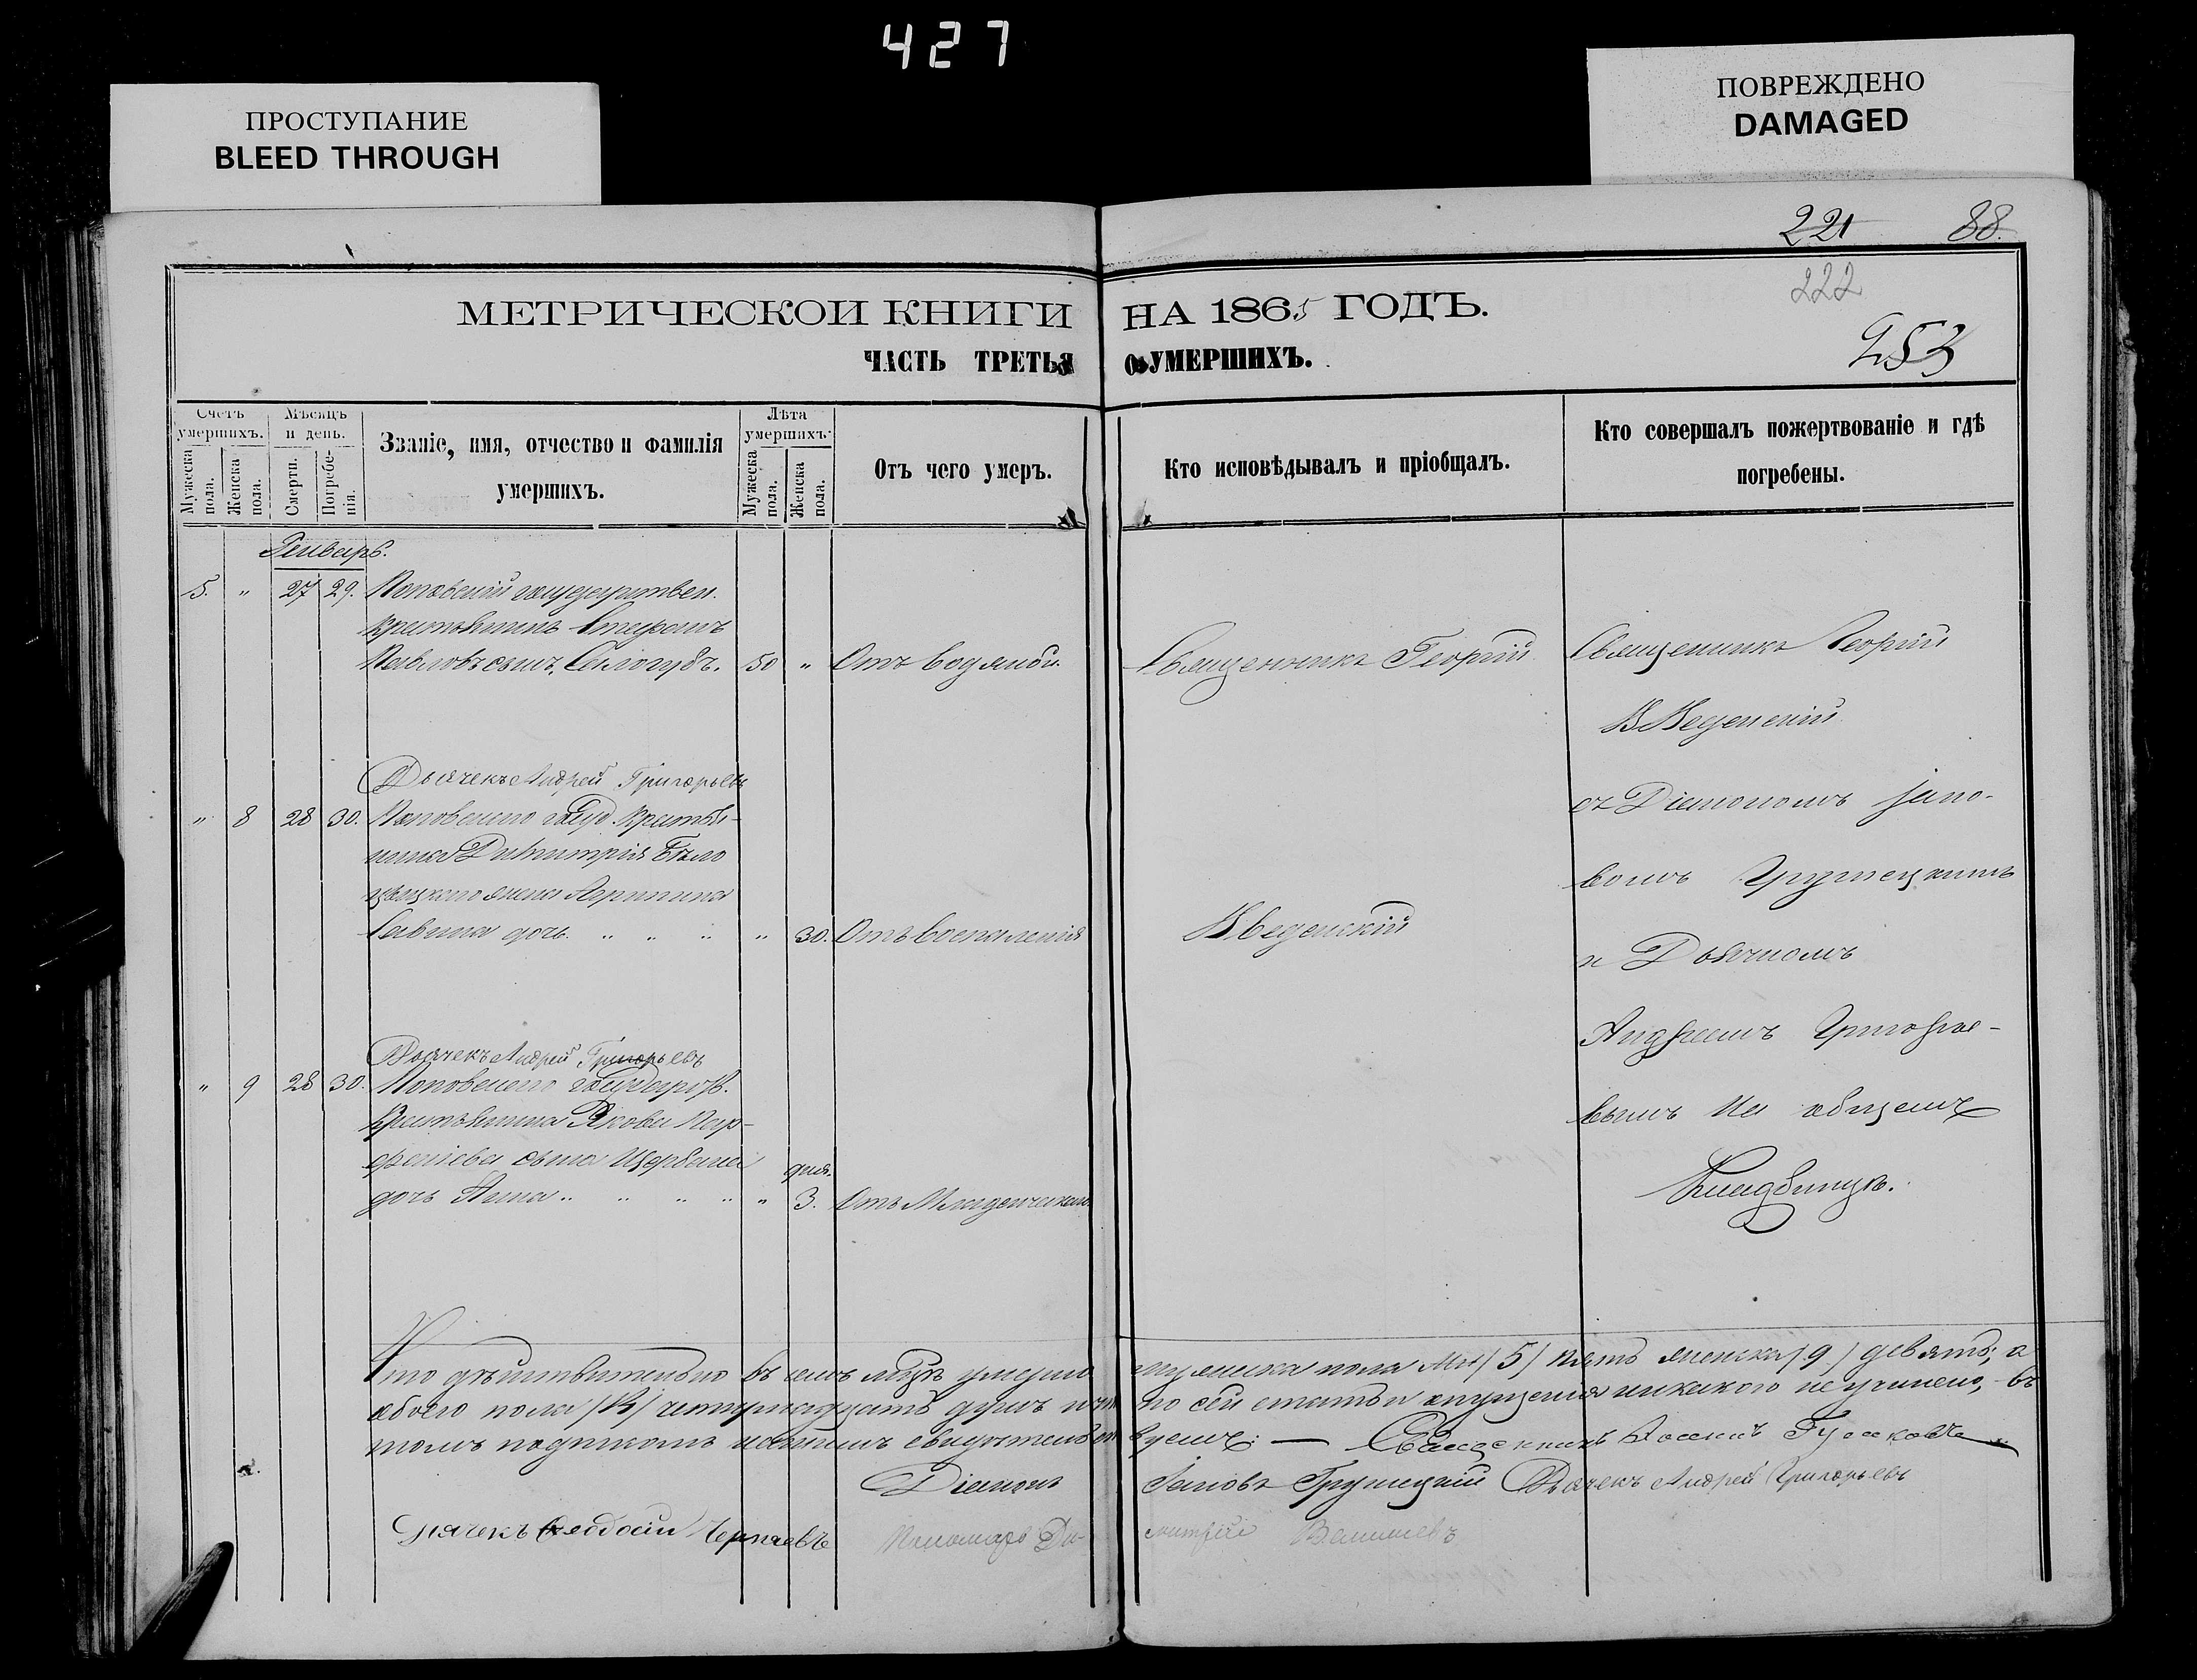 427
ПРОСТУПАНИЕ
BLEED THROUGH
ПОВРЕЖДЕНО
DAMAGED
221 88.
222
253
МЕТРИЧЕСКОЙ КНИГИ НА 1865 ГОДЪ.
ЧАСТЬ ТРЕТЬЯ О УМЕРШИХЪ.
Счетъ умершихъ.
Мужеска пола.
Женска пола.
Мѣсяцъ и день.
Смерти.
Погребенія.
Званіе, имя, отчество и фамилія
умершихъ.
Лѣта умершихъ.
Мужеска пола.
Женска пола.
Отъ чего умеръ.
Кто исповѣдывалъ и пріобщалъ.
Кто совершалъ пожертвованіе и гдѣ
погребены.
Генварь.
5. " 27 29. Поповскій государствен.
крестьянинъ
Павловъ сынъ, Склогубъ. 50 " Отъ водяной.
Священникъ Георгій
Священникъ Георгій
Введенскій
Дьячекъ Андрей Григорьевъ
" 8 28 30. Поповскаго госуд. крестья-
нина Димитрія Бѣло
жена
Савина дочь. " " " " 30. Отъ воспаленія
Введенскій
съ Діакономъ Іако-
вомъ Грузнецкимъ
и Дьячкомъ
Андреемъ Григорье-
вымъ на общемъ
Кладбищѣ.
Дьячекъ Андрей Григорьевъ
" 9 28 30. Поповскаго государств.
крестьянина Якова Пар-
феніева сына Щербана дня.
дочь Анна " " " " " 3. Отъ Младенческой.
Что дѣйствительно въ семъ мѣсяцѣ умерло мужеска пола /5/ пять женска /9/ девять; а
обоего пола четырнадцать душъ и что по сей статьи опущенія никакого не учинено, въ
томъ подпискою нашимъ свидѣтельствуемъ: — Священникъ
Діаконъ Іаковъ Грузнецкій Дьячекъ Андрей Григорьевъ
Дьячекъ Феодосій Черняевъ Пономарь Димитрій